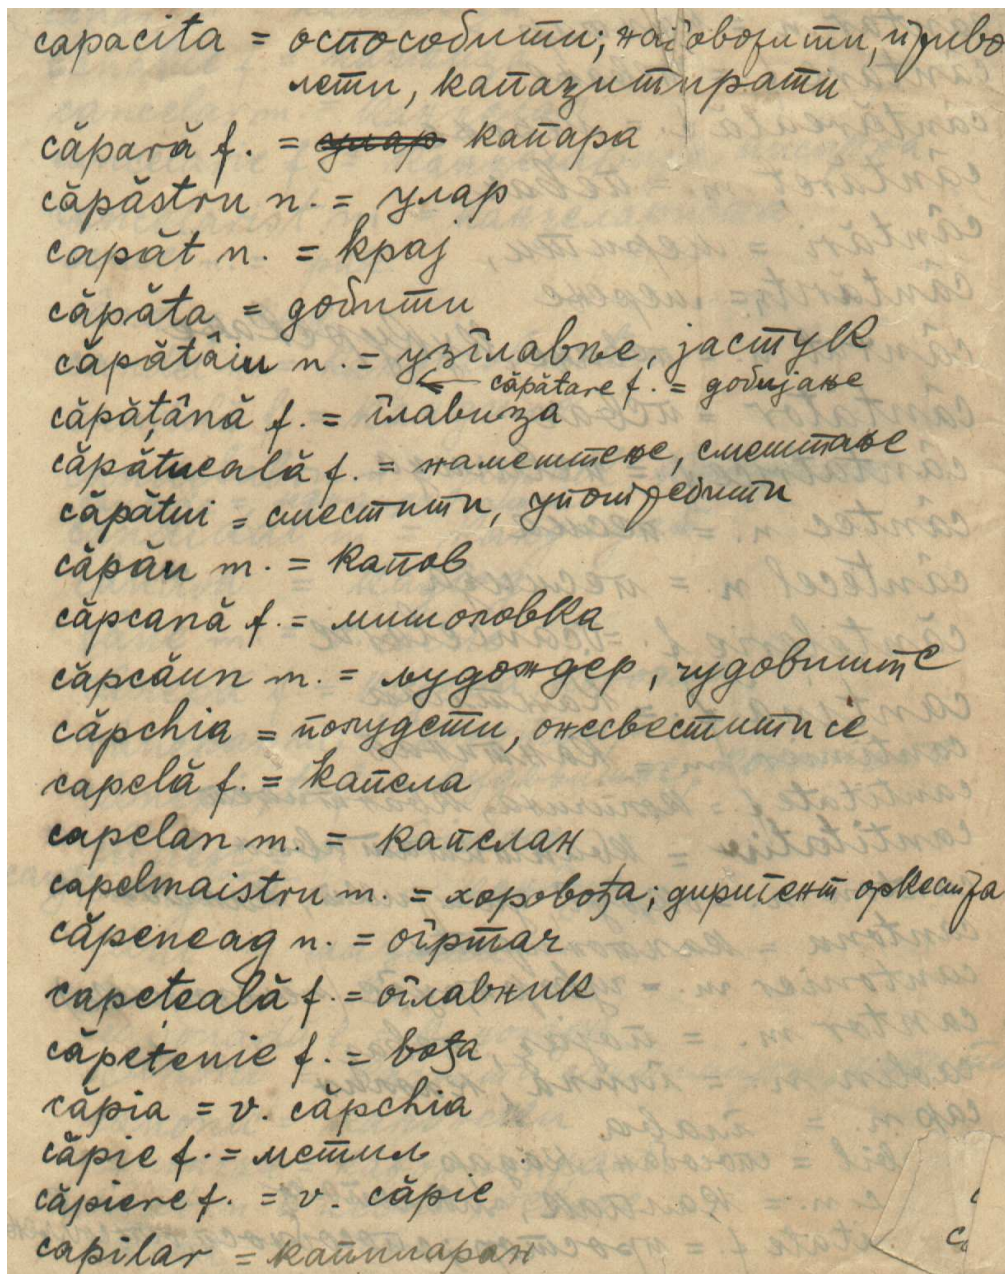 capacita = оспособити; наговорити, приво
лети, капацитирати
căpară f. = улар капара
căpăstru n. = улар
capăt n. = крај
căpăta = добити
căpătâiu n. = узглавље, јастук
← căpătare f. = добијање
căpăţână f. = главица
căpătueală f. = намештење, смештање
căpătui = сместити, употребити
căpău m. = капов
căpcană f. = мишоловка
căpcăun m. = људождер, чудовиште
căpchia = полудети, онесвестити се
capelă f. = капела
capelan m. = капелан
capelmaistru m. = хоровођа; диригент оркестра
căpeneag n. = огртач
capeţeală f. = оглавник
căpetenie f. = вођа
căpia = v. căpchia
căpie f. = метиљ
căpiere f. = v. căpie
capilar = капиларан